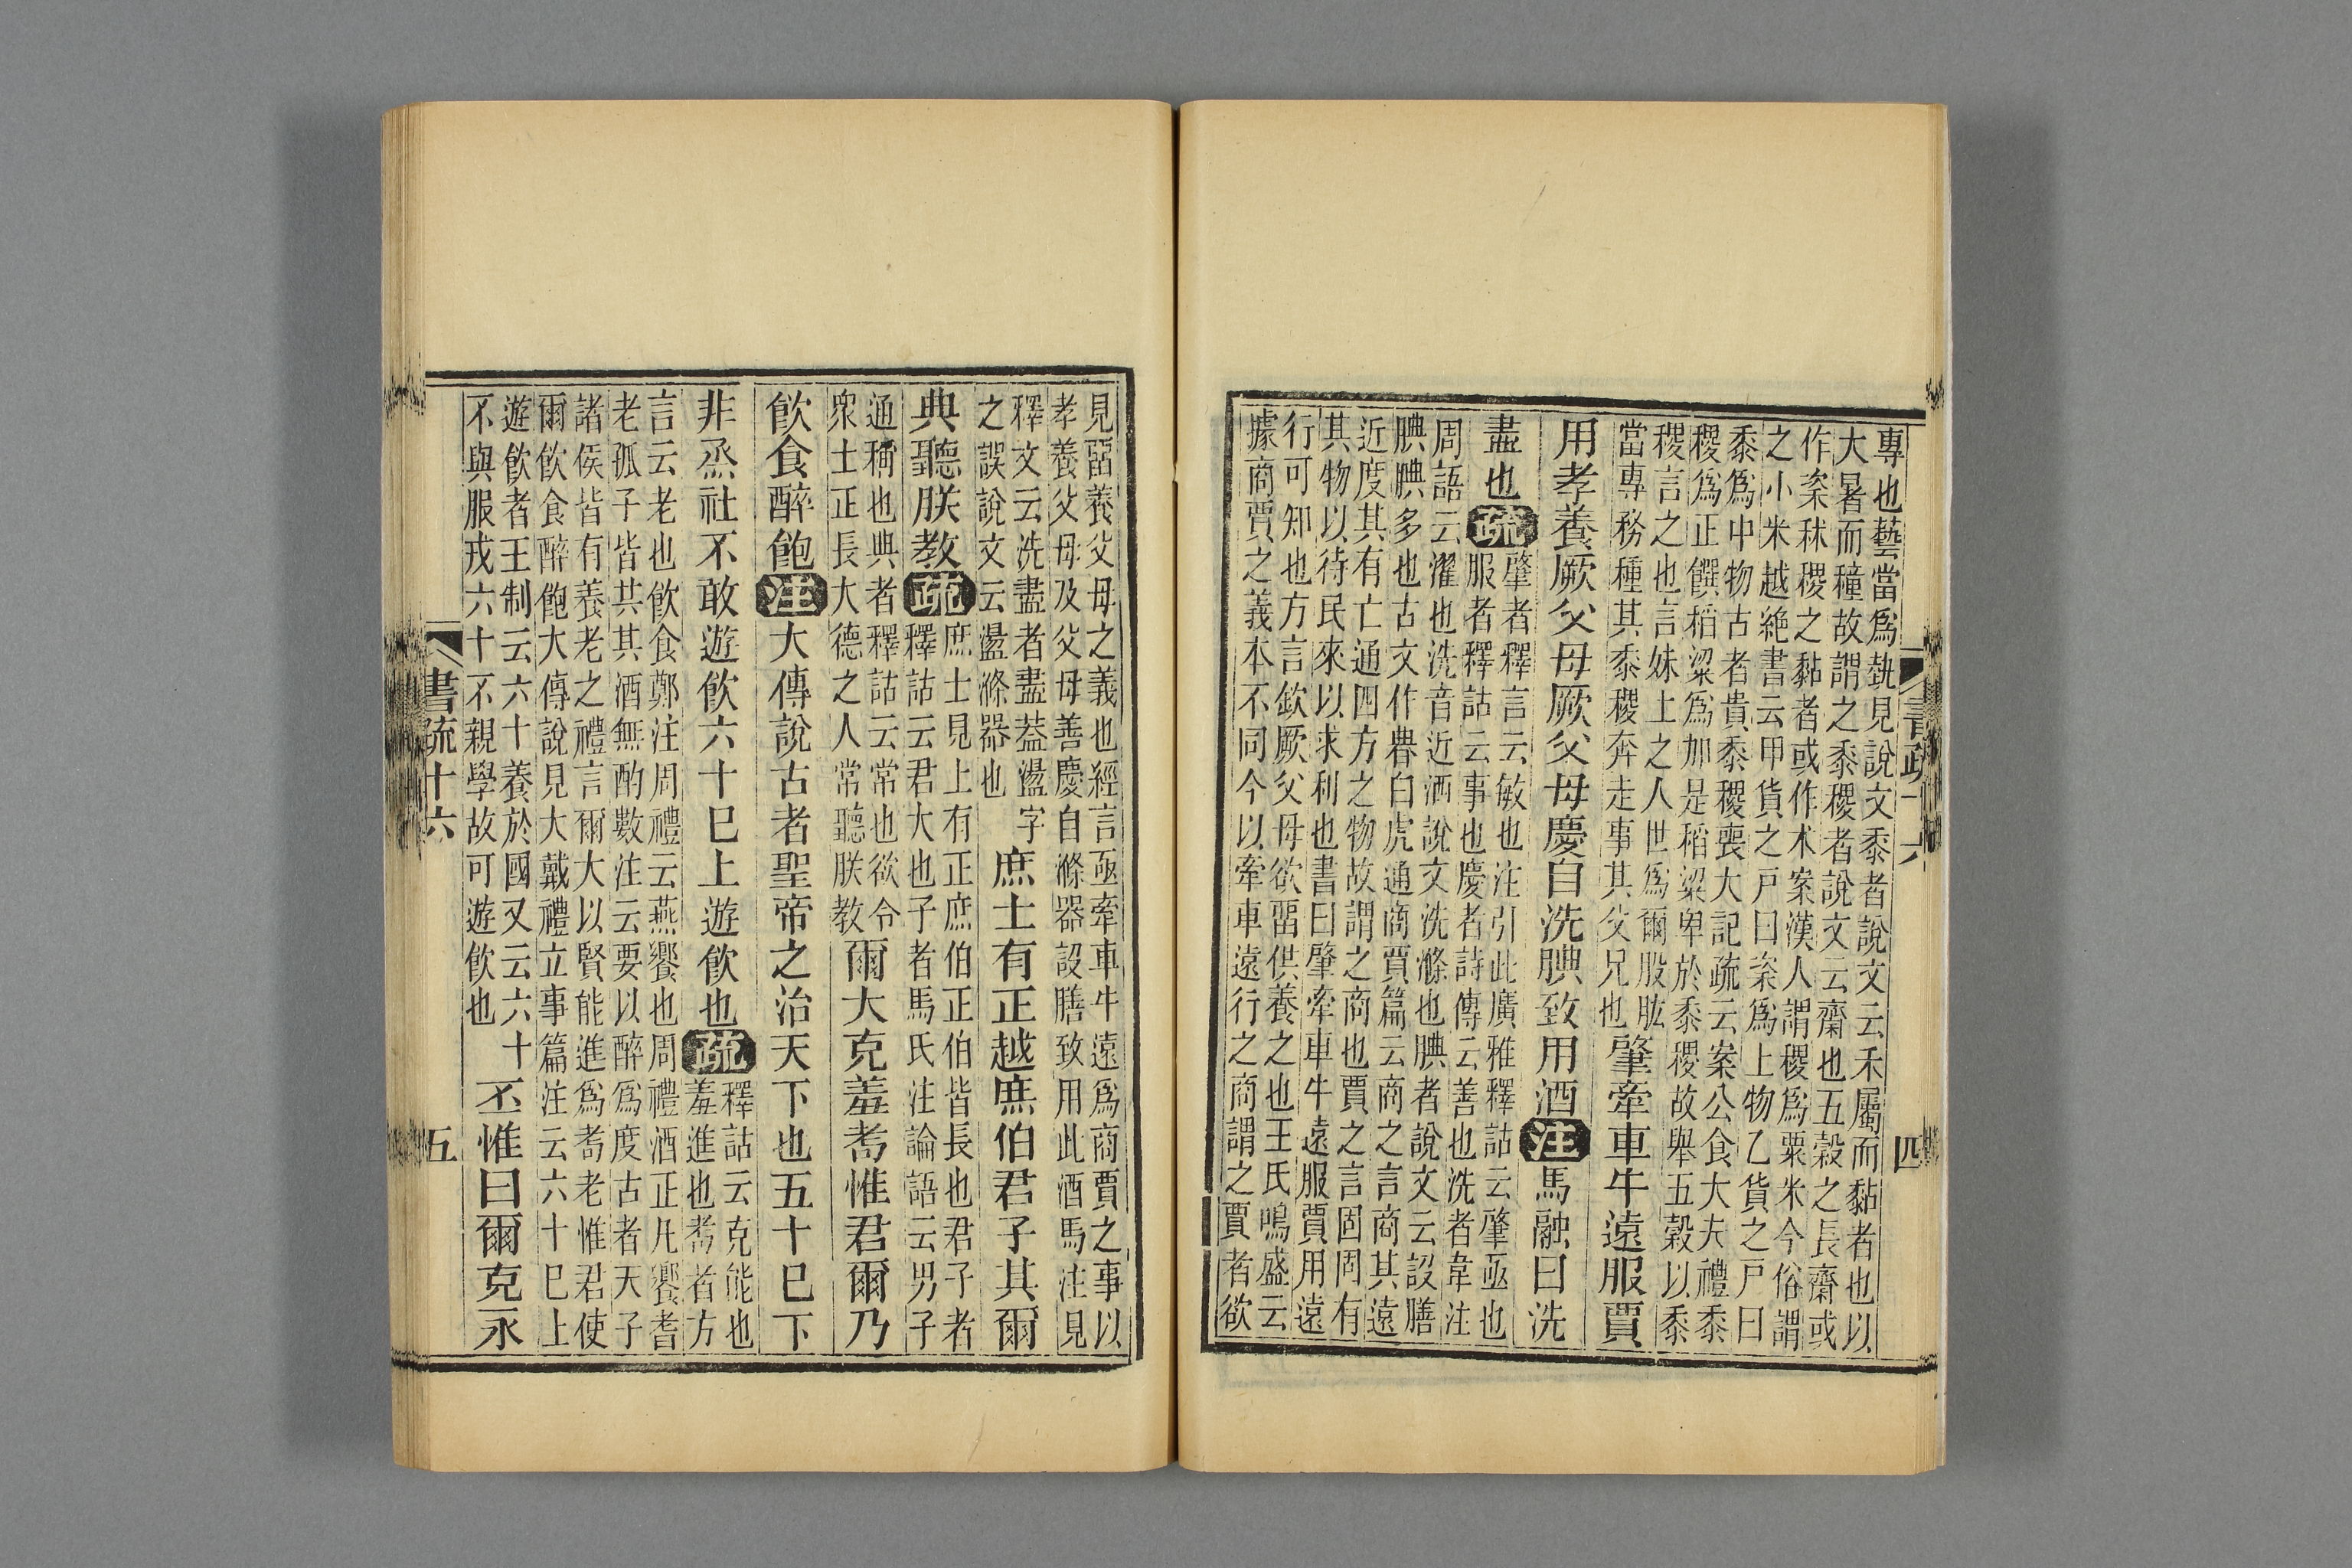 專也藝當爲埶見說文黍者說文云禾屬而黏者也以
大暑而穜故謂之黍稷者說文云齋也五穀之長齋或
作粢秫稷之黏者或作朮案漢人謂稷爲粟米今俗謂
之小米越絶書云甲貨之戶曰粢爲上物乙貨之戶曰
黍爲中物古者貴黍稷喪大記疏云案公食大夫禮黍
稷爲正饌稻粱爲加是稻粱卑於黍稷故舉五穀以黍
稷言之也言妹土之人世爲爾股肱
當專務種其黍稷奔走事其父兄也
肇牽車牛遠服賈
用孝養厥父母厥父母慶自洗腆致用酒注馬融曰洗
盡也疏
肇者釋言云敏也注引此廣雅釋詁云肇亟也
服者釋詁云事也慶者詩傳云善也洗者韋注
周語云濯也洗音近洒說文洗滌也腆者說文云設膳
腆腆多也古文作㫧白虎通商賈篇云商之言商其遠
近度其有亡通四方之物故謂之商也賈之言固固有
其物以待民來以求利也書曰肇牽車牛遠服賈用遠
行可知也方言欽厥父母欲畱供養之也王氏鳴盛云
據商賈之義本不同今以牽車遠行之商謂之賈者欲
書疏十六
四
見畱養父母之義也經言亟牽車牛遠爲商賈之事以
孝養父母及父母善慶自滌器設膳致用此酒馬注見
釋文云洗盡者盡葢盪字
之誤說文云盪滌器也
庶士有正越庶伯君子其爾
典聽朕教疏
庶士見上有正庶伯正伯皆長也君子者
釋詁云君大也子者馬氏注論語云男子
通稱也典者釋詁云常也欲令
衆士正長大德之人常聽朕教
爾大克羞耇惟君爾乃
飮食醉飽注大傳說古者聖帝之治天下也五十巳下
非烝社不敢遊飮六十巳上遊飮也疏
釋詁云克能也
羞進也耇者方
言云老也飮食鄭注周禮云燕饗也周禮酒正凡饗耆
老孤子皆共其酒無酌數注云要以醉爲度古者天子
諸侯皆有養老之禮言爾大以賢能進爲耇老惟君使
爾飮食醉飽大傳說見大戴禮立事篇注云六十巳上
遊飮者王制云六十養於國又云六十
不與服戎六十不親學故可遊飮也
丕惟曰爾克永
書疏十六
五